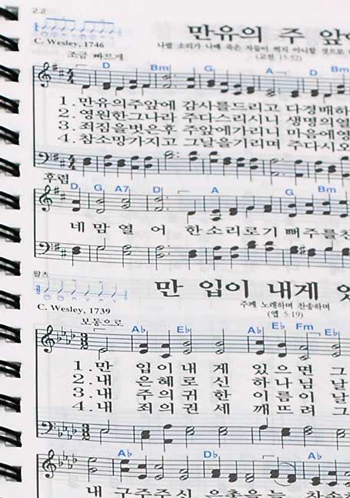 22
만유의 주 앞에
C. Wesley, 1746
나팔 소리가 나매 죽은 자들이 썩지 아니할 것으로
(고전 15:52)
조금 빠르게
D Bm G A D Bm
1. 만유의주앞에 감사를드리고 다정배하
2. 영원한그나라 주다스리시니 생명의열
3. 죄짐을벗은후 주앞에가리니 마음에영
4. 참소망가지고 그날을기리며 주다시오
후렴
D G A7 D A G Bm
네 맘 열 어 한소리로기 뻐주를찬
왈츠
만 입이 내게 있
C. Wesley, 1739
주께 노래하며 찬송하며
(엡 5:19)
보통으로
A♭ E♭ A♭ E♭ Fm E♭
1. 만 입이 내 게 있 으 면 그
2. 내 은혜 로 신 하 나 님 날
3. 내 주의 귀 한 이 름 이 날
4. 내 죄의 권 세 깨 뜨 려 그
A♭ D♭ A♭
내 구주주신